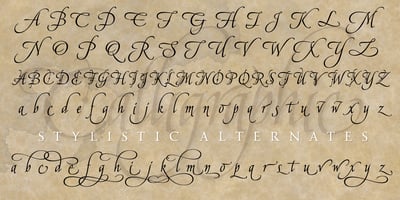 A B C D E F G H I J K L M
N O P Q R S T U V W X Y Z
A B C D E F G H I J K L M N O P Q R S T U V W X Y Z
a b c d e f g h i j k l m n o p q r s t u v w x y z
STYLISTIC ALTERNATES
a b c d e f g h i j k l m n o p q r s t u v w x y z